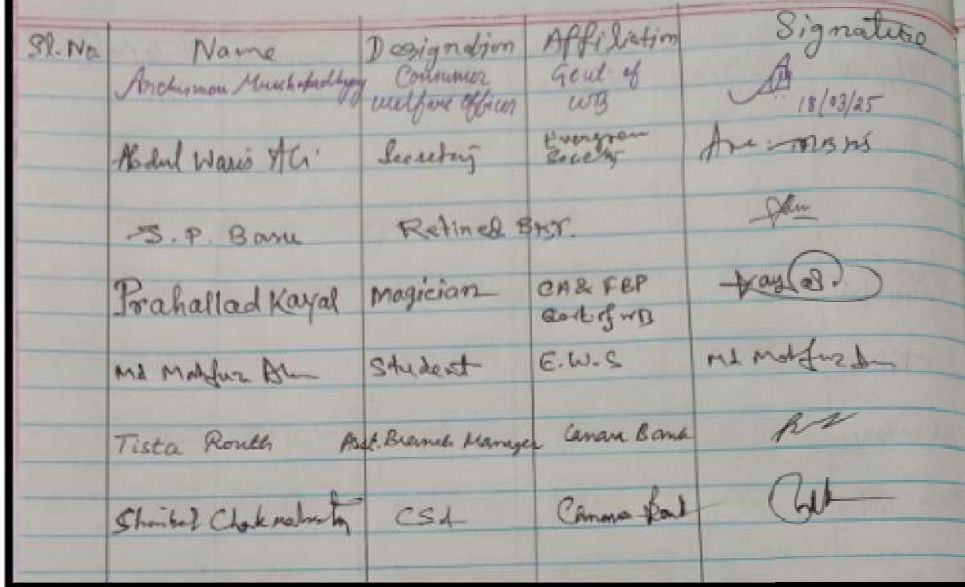 Sl. No Name Designation Affiliation Signature
Archisman Mukhopadhyay Consumer Welfare Officer Govt. of WB 18/03/25
Abdul Waris Ali Secretary Evergreen Society
S. P. Basu Retired
Prahallad Kayal Magician CA & FBP Govt. of WB Kayal
Md Mahfuz Student E.W.S Md Mahfuz
Tista Routh Asst. Branch Manager Canara Bank
Chakraborty Canara Bank